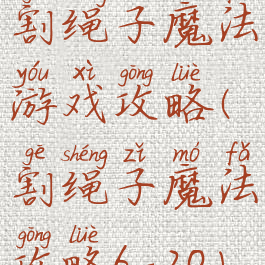 割绳子魔法
yóu xì gōng lüè
游戏攻略(
gē shéng zǐ mó fǎ
割绳子魔法
gōng lüè
攻略6-20)